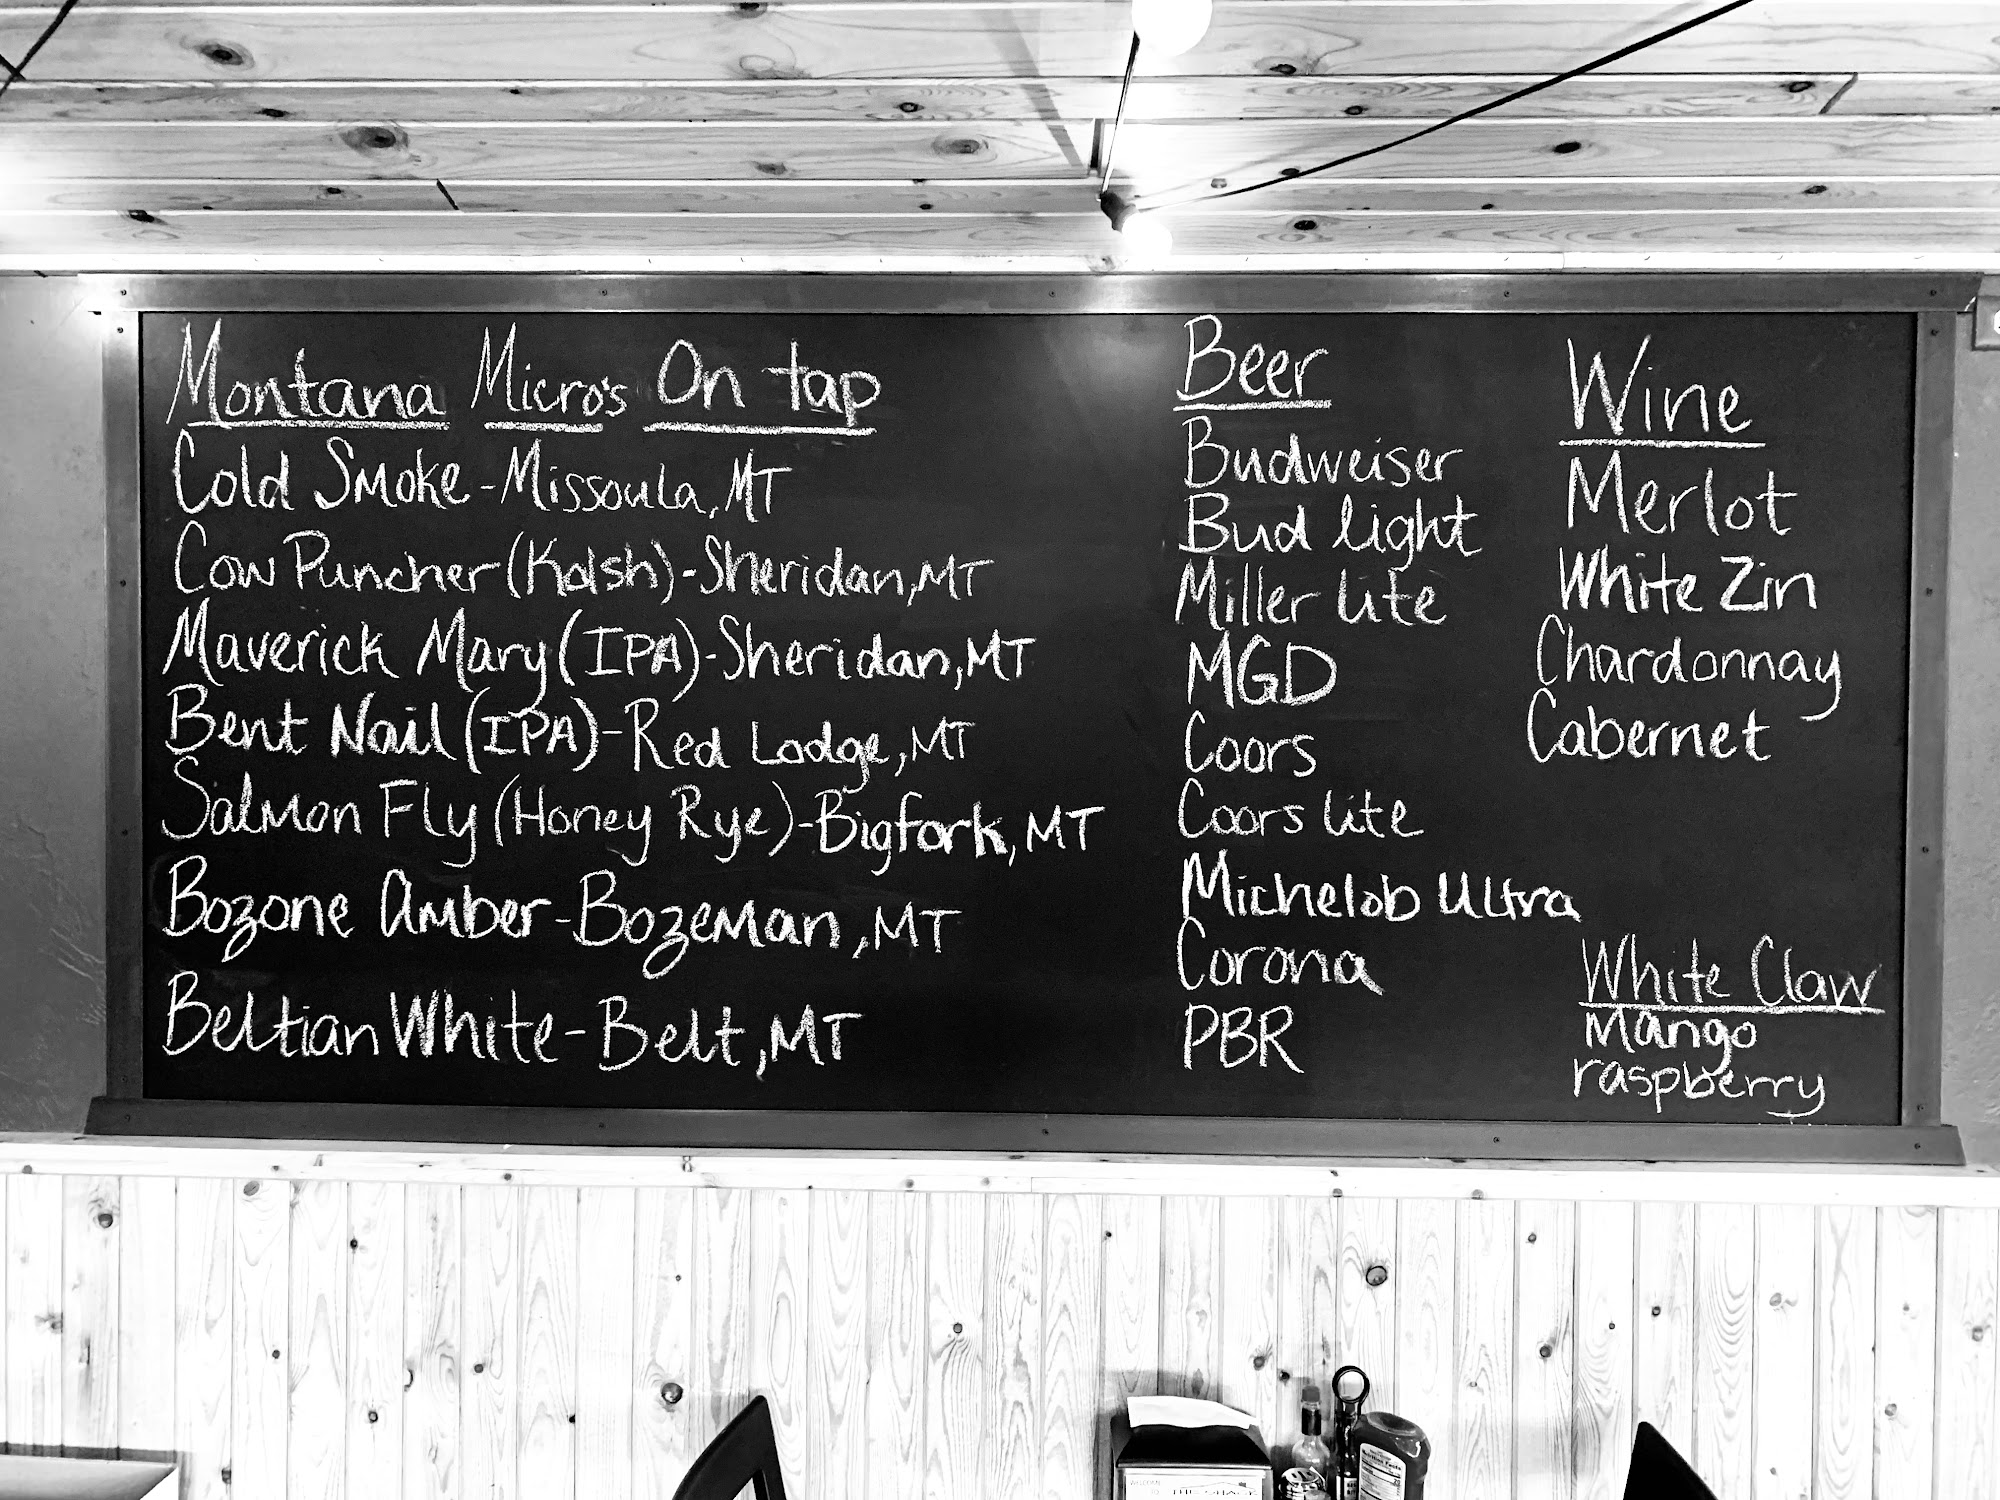 Montana Micro's On tap
Cold Smoke-Missoula, MT
Cow Puncher (Kolsh)-Sheridan, MT
Maverick Mary (IPA)-Sheridan, MT
Bent Nail (IPA)-Red Lodge, MT
Salmon Fly (Honey Rye)-Bigfork, MT
Bozone Amber-Bozeman, MT
Beltian White-Belt, MT
Beer
Budweiser
Bud light
Miller lite
MGD
Coors
Coors lite
Michelob Ultra
Corona
PBR
Wine
Merlot
White Zin
Chardonnay
Cabernet
White Claw
Mango
raspberry
THE SHACK
Nutrition Facts